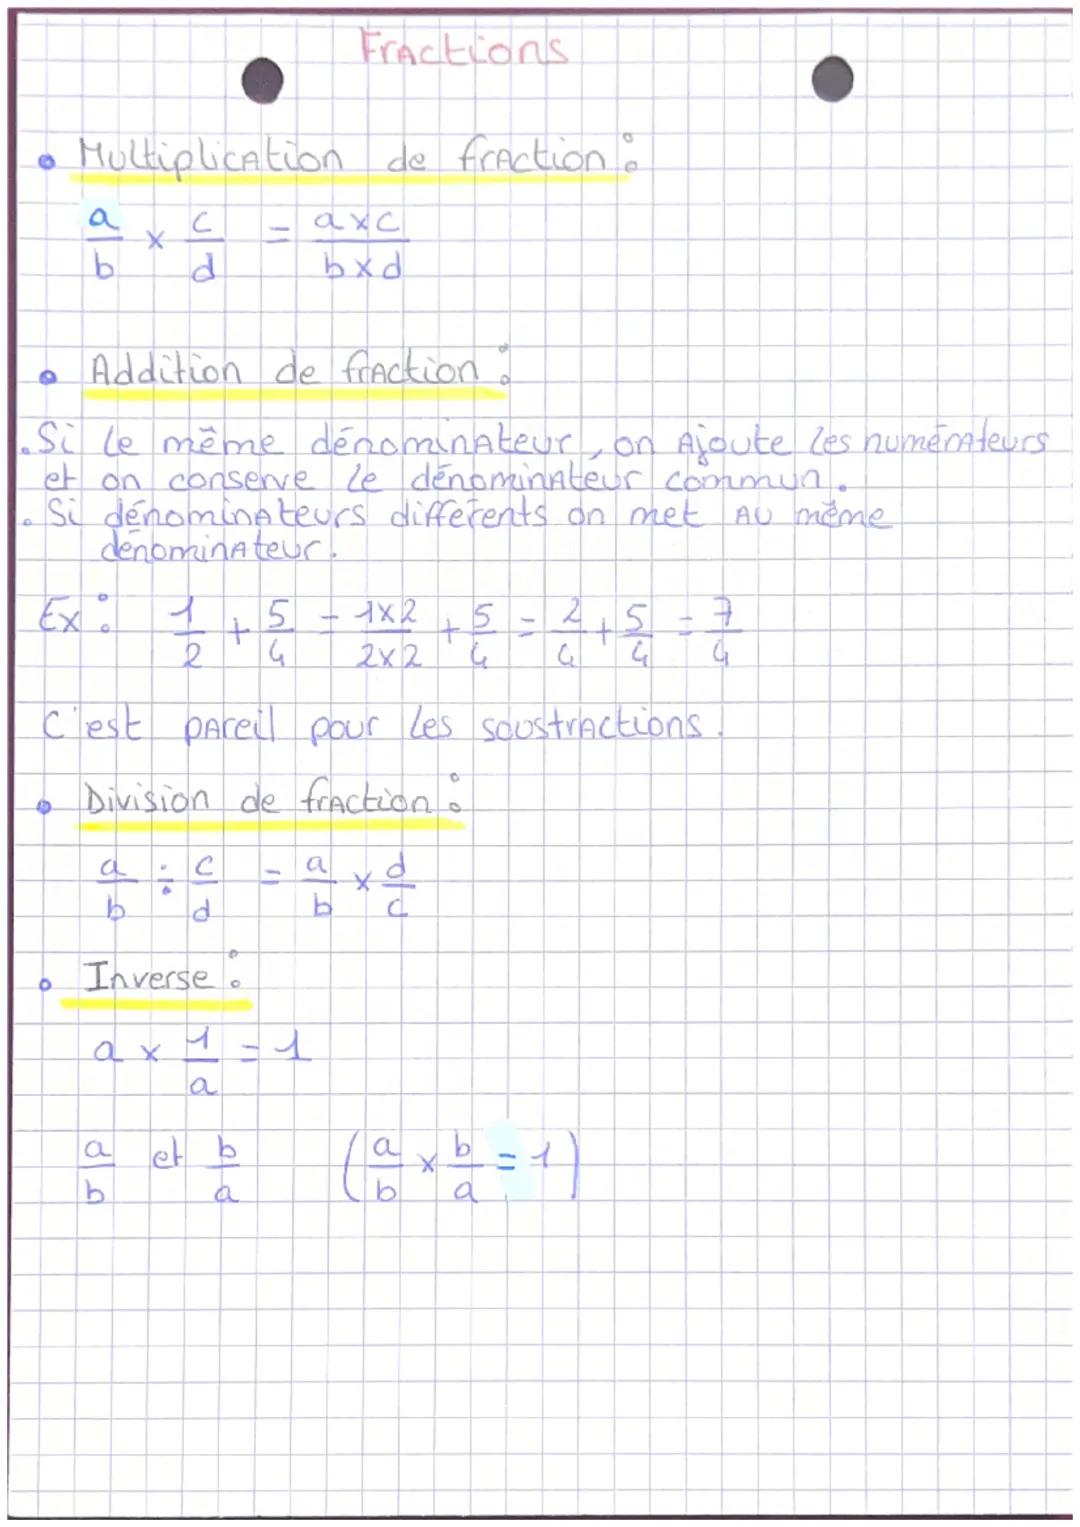 Fractions
• Multiplication de fraction :
a/b × c/d = a×c/b×d
• Addition de fraction :
. Si le même dénominateur, on ajoute les numérateurs
et on conserve le dénominateur commun.
. Si dénominateurs différents on met au même
dénominateur.
Ex : 1/2 + 5/4 = 1×2/2×2 + 5/4 = 2/4 + 5/4 = 7/4
C'est pareil pour les soustractions.
• Division de fraction :
a/b ÷ c/d = a/b × d/c
• Inverse :
a × 1/a = 1
a/b et b/a (a/b × b/a = 1)